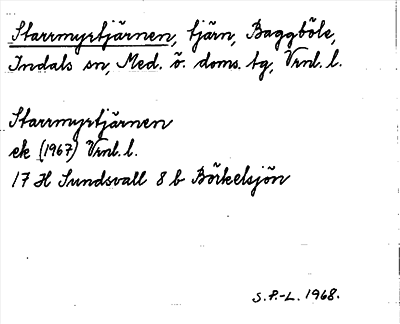 Starrmyrtjärnen, tjärn, Baggböle,
Indals sn, Med. ö. doms. tg, Vrnl. l.
Starrmyrtjärnen
ek (1967) Vrnl. l.
17 H Sundsvall 8 b Börkelsjön
S.P.-L. 1968.